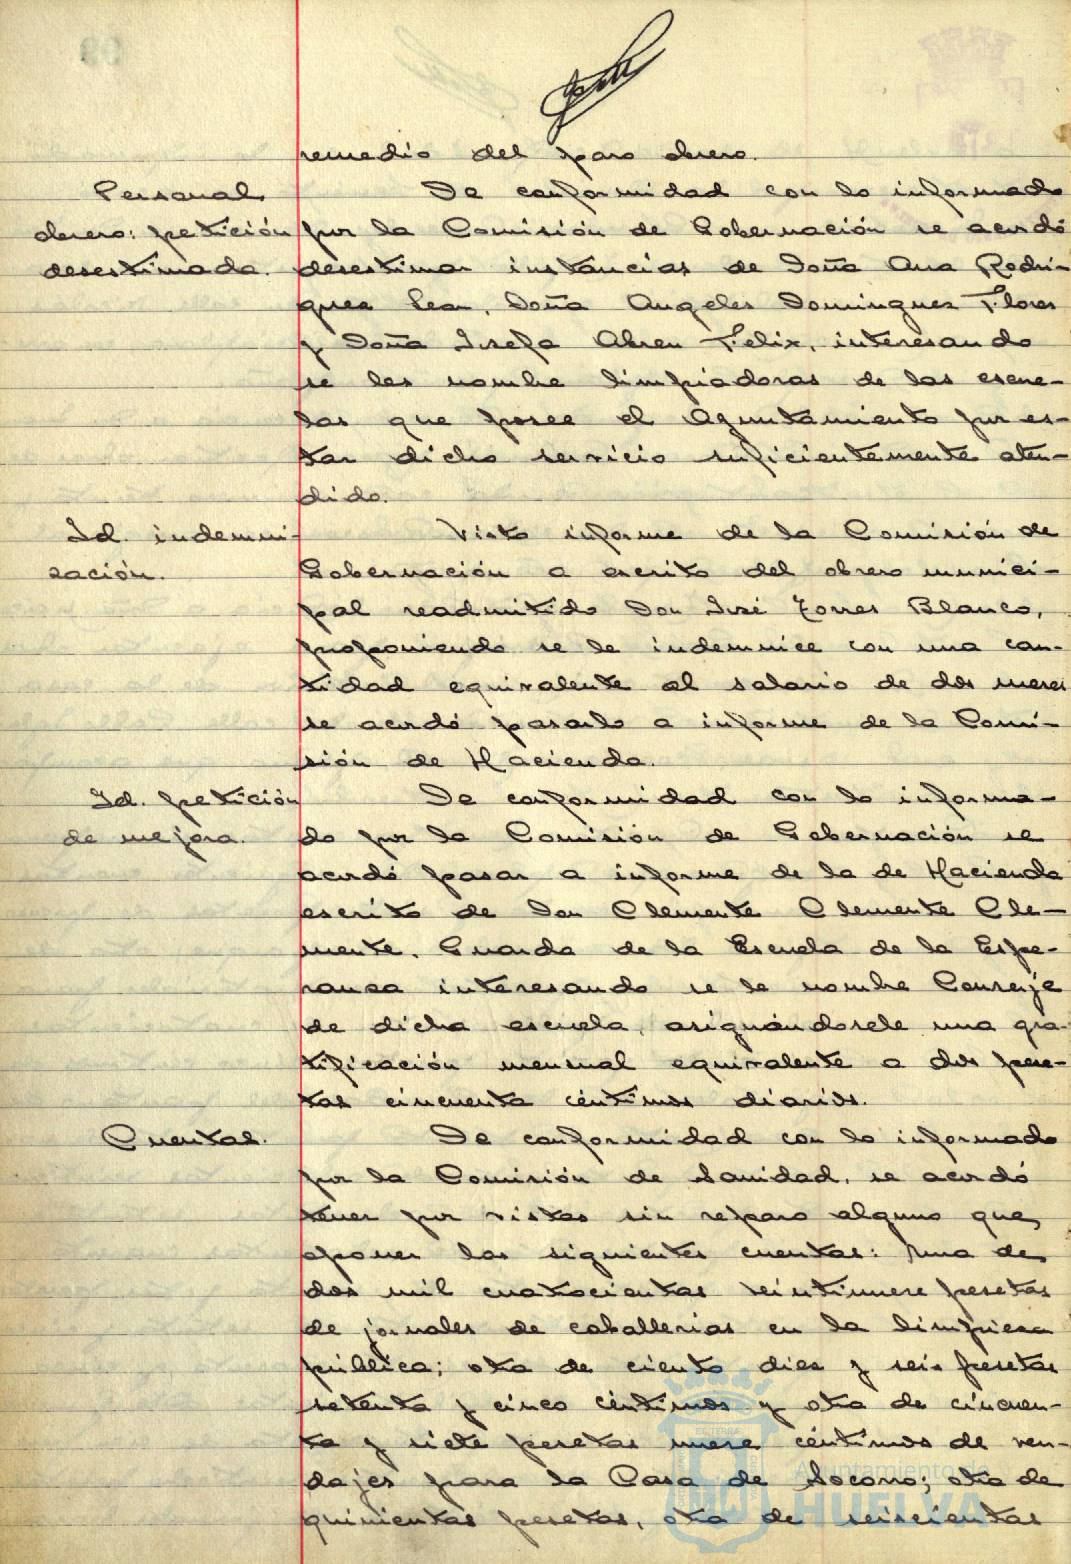 remedio del paro obrero.
Personal
obrero: petición
desestimada.
De conformidad con lo informado
por la Comisión de Gobernación se acordó
desestimar instancias de Doña Ana Rodri-
guez Lea, Doña Angeles Dominguez Flores
y Doña Josefa Abreu Felix, interesando
se les nombre limpiadoras de las escue-
las que posee el Ayuntamiento por es-
tar dicho servicio suficientemente aten-
dido.
Id. indemni-
zación.
Visto informe de la Comisión de
Gobernación a escrito del obrero munici-
pal readmitido Don José Torres Blanco,
proponiendo se le indemnice con una can-
tidad equivalente al salario de dos meses
se acordó pasarlo a informe de la Comi-
sión de Hacienda.
Id. petición
de mejora.
De conformidad con lo informa-
do por la Comisión de Gobernación se
acordó pasar a informe de la de Hacienda
escrito de Don Clemente Clemente Cle-
mente, Guarda de la Escuela de la Espe-
ranza interesando se le nombre Conserje
de dicha escuela, asignándosele una gra-
tificación mensual equivalente a dos pese-
tas cincuenta céntimos diarios.
Cuentas.
De conformidad con lo informado
por la Comisión de Sanidad, se acordó
tener por vistas sin reparo alguno que
oponer las siguientes cuentas: una de
dos mil cuatrocientas veintinueve pesetas
de jornales de caballerias en la limpieza
pública; otra de ciento diez y seis pesetas
setenta y cinco céntimos y otra de cincuen-
ta y siete pesetas nueve céntimos de ven-
dajes para la Casa de Socorro; otra de
quinientas pesetas, otra de seiscientas
Ayuntamiento de
HUELVA